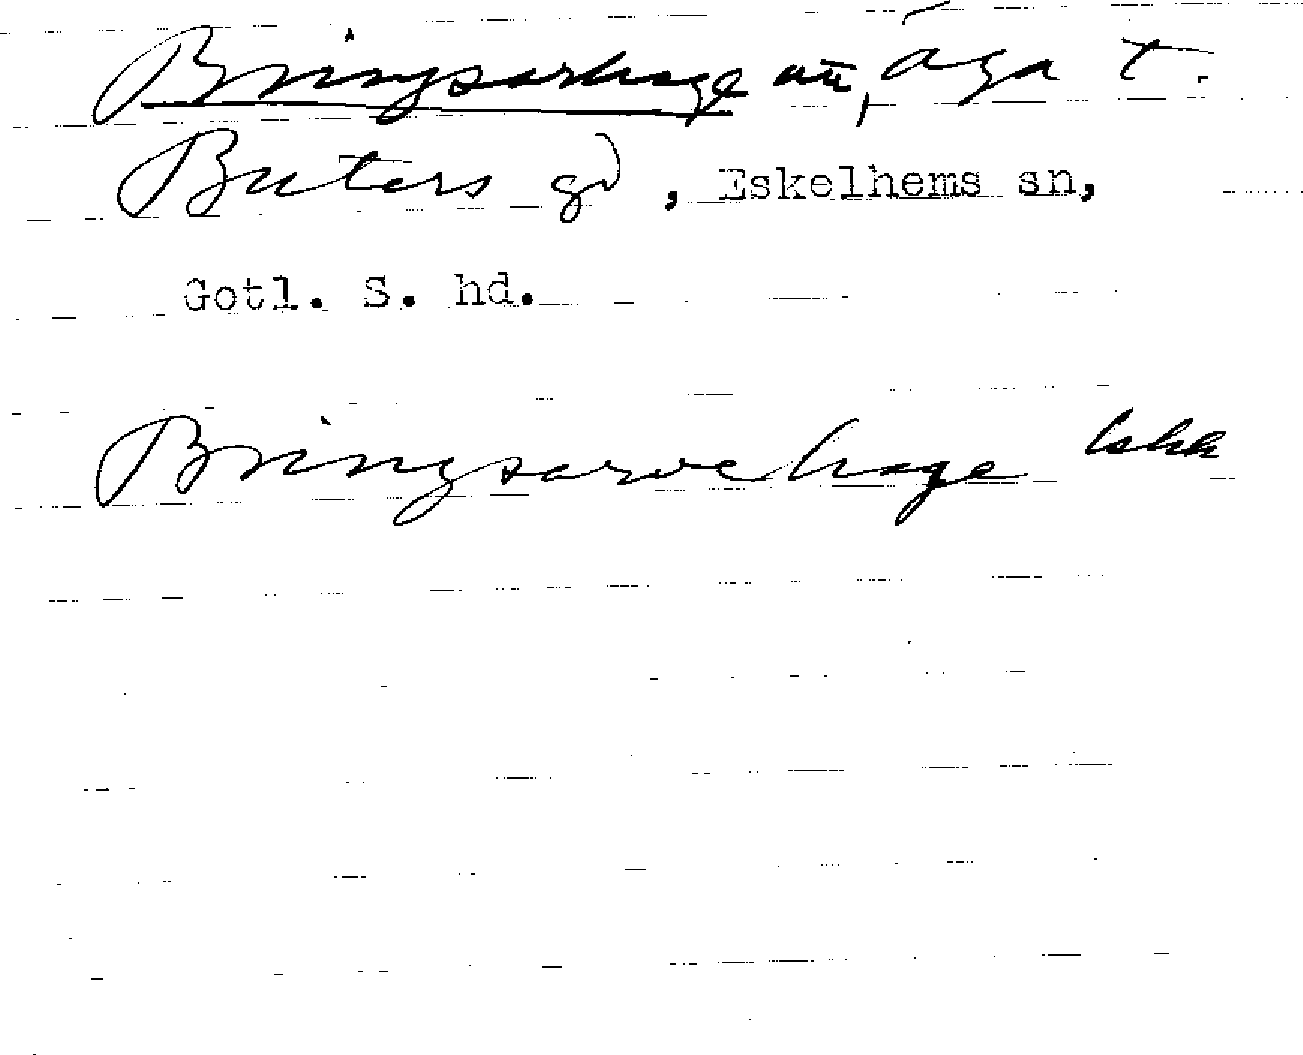 Bringsarhage äng, äga t.
Buters gd, Eskelhems sn,
Gotl. S. hd.
Bringsarve hage